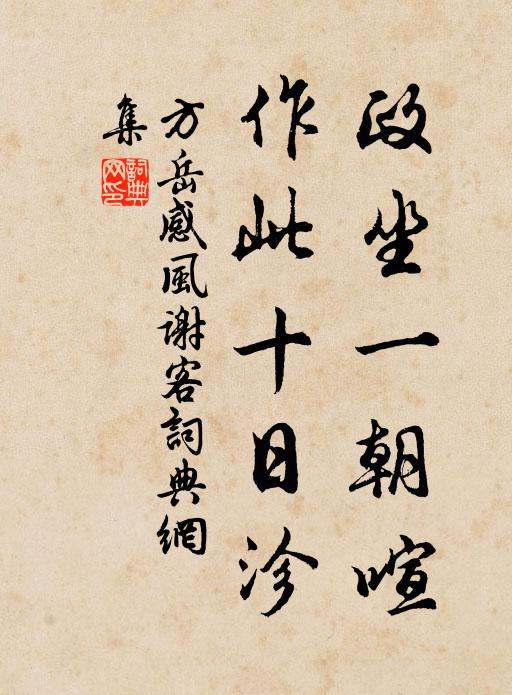 政坐一朝暄
作此十日沴
方岳感風谢客詞典網
集
詞典
网印